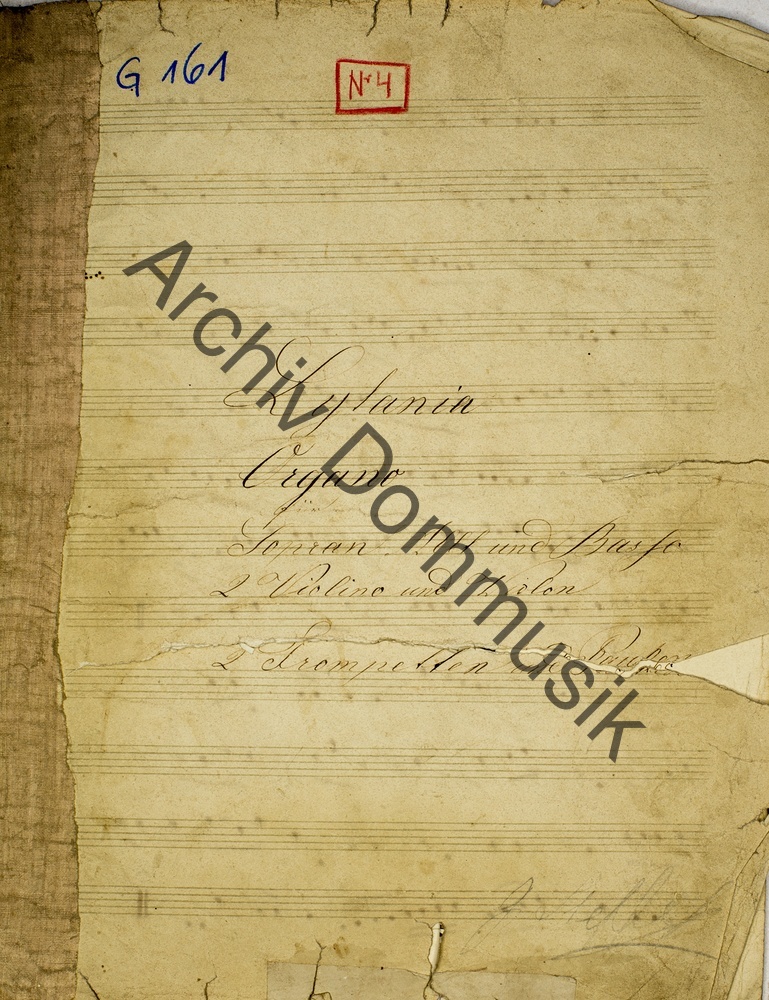 G 161
Nr 4
Lytania
Organo
für
Sopran Alt und Basso
2 Violino und Violon
2 Trompetten und Pauken
Archiv Dommusik